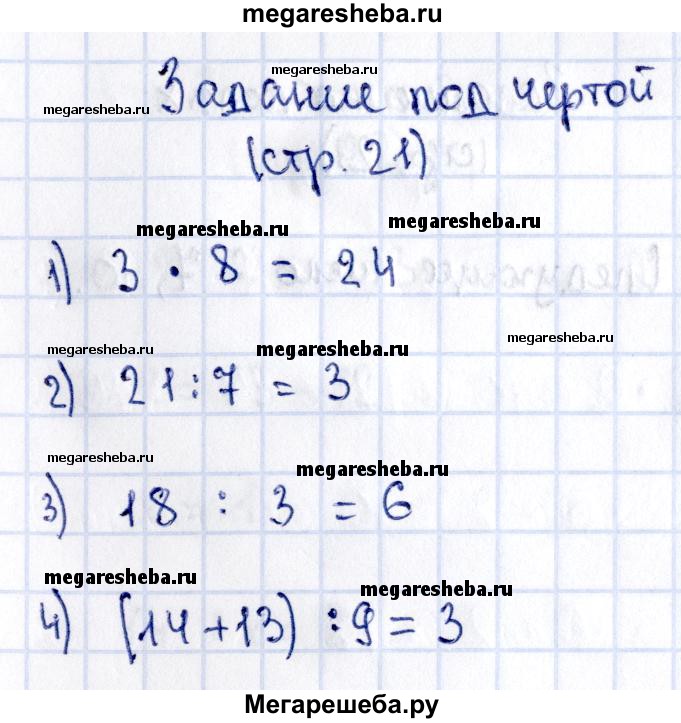 megaresheba.ru
megaresheba.ru
megaresheba.ru
Задание под чертой
(стр. 21)
megaresheba.ru
megaresheba.ru
1) 3 · 8 = 24
megaresheba.ru
megaresheba.ru
megaresheba.ru
2) 21 : 7 = 3
megaresheba.ru
megaresheba.ru
3) 18 : 3 = 6
megaresheba.ru
megaresheba.ru
4) (14 + 13) : 9 = 3
Мегарешеба.ру